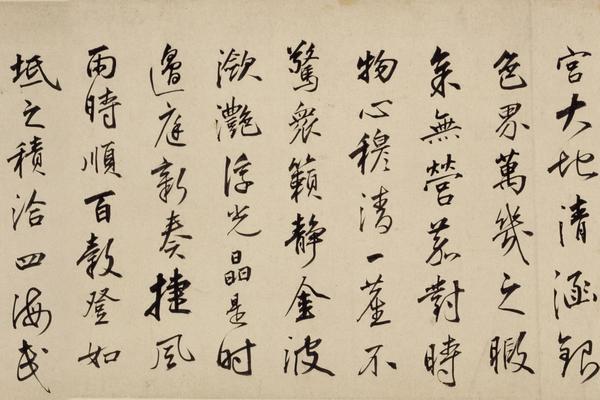 宮大地清涵銀
色界萬幾之暇
余無營茲對時
物心穆清一塵不
驚衆籟靜金波
瀲灧浮光晶是時
邊庭新奏捷風
雨時順百穀登如
坻之積洽四海民